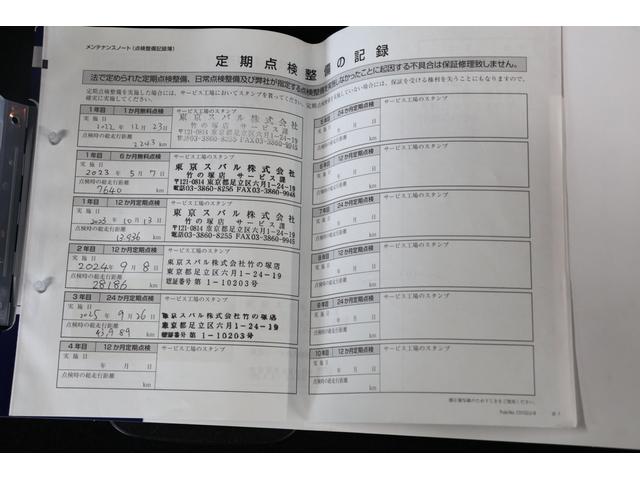 メンテナンスノート(点検整備記録簿)
定期点検整備の記録
法で定められた定期点検整備、日常点検整備及び弊社が指定する点検整備を実施しなかったことに起因する不具合は保証修理致しません。
定期点検整備を実施した場合には、サービス工場においてスタンプを貰ってください。定期点検整備を実施していない場合には、保証を受ける権利を失うことにもなりますので、
確実に実施してください。
1年目 1か月無料点検 サービス工場のスタンプ
実施日
2022年12月23日
点検時の総走行距離
2243 km
東京スバル株式会社
竹の塚店 サービス課
〒121-0814 東京都足立区六月1-24-19
電話03-3860-8255 FAX03-3860-9945
1年目 6か月無料点検 サービス工場のスタンプ
実施日
2023年5月7日
点検時の総走行距離
7640 km
東京スバル株式会社
竹の塚店 サービス課
〒121-0814 東京都足立区六月1-24-19
電話03-3860-8255 FAX03-3860-9945
1年目 12か月定期点検 サービス工場のスタンプ
実施日
年10月13日
点検時の総走行距離
13,936 km
東京スバル株式会社
竹の塚店 サービス課
〒121-0814 東京都足立区六月1-24-19
電話03-3860-8255 FAX03-3860-9945
2年目 12か月定期点検 サービス工場のスタンプ
実施日
2024年9月8日
点検時の総走行距離
28186 km
東京スバル株式会社竹の塚店
東京都足立区六月1-24-19
認証番号 第1-10203号
3年目 24か月定期点検 サービス工場のスタンプ
実施日
2025年9月26日
点検時の総走行距離
43,989 km
東京スバル株式会社竹の塚店
東京都足立区六月1-24-19
認証番号 第1-10203号
4年目 12か月定期点検 サービス工場のスタンプ
実施日
年 月 日
点検時の総走行距離
km
24か月定期点検 サービス工場のスタンプ
実施日
年 月 日
点検時の総走行距離
km
12か月定期点検 サービス工場のスタンプ
実施日
年 月 日
点検時の総走行距離
km
7年目 24か月定期点検 サービス工場のスタンプ
実施日
年 月 日
点検時の総走行距離
km
12か月定期点検 サービス工場のスタンプ
実施日
年 月 日
点検時の総走行距離
km
24か月定期点検 サービス工場のスタンプ
実施日
年 月 日
点検時の総走行距離
km
10年目 12か月定期点検 サービス工場のスタンプ
実施日
年 月 日
点検時の総走行距離
km